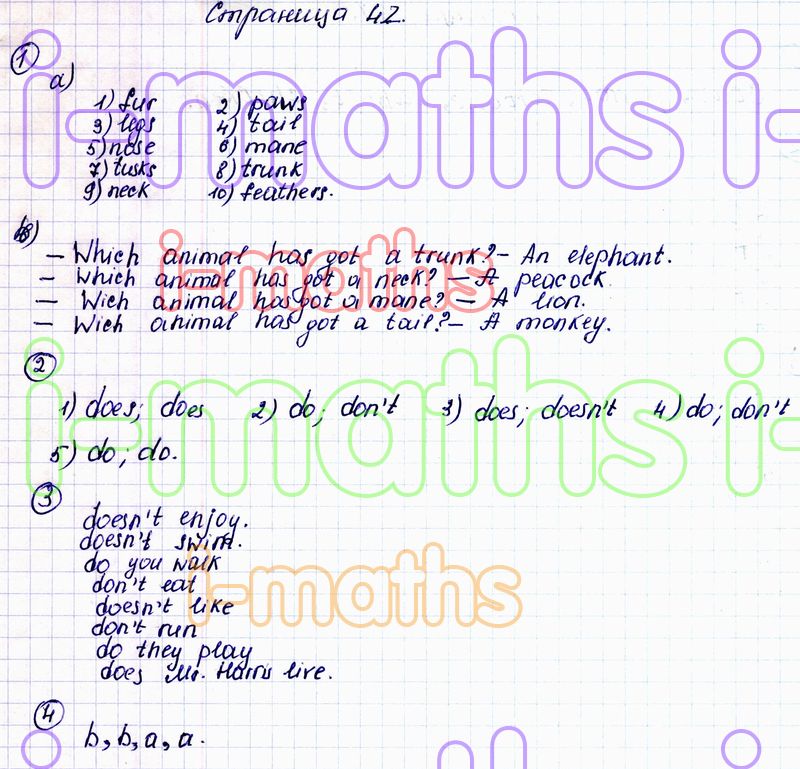 Страница 42.
1
a)
1) fur 2) paws
3) legs 4) tail
5) nose 6) mane
7) tusks 8) trunk
9) neck 10) feathers.
b)
— Which animal has got a trunk? — An elephant.
— Which animal has got a neck? — A peacock
— Wich animal has got a mane? — A lion.
— Wich animal has got a tail? — A monkey.
2
1) does; does 2) do; don't 3) does; doesn't 4) do; don't
5) do; do.
3
doesn't enjoy.
doesn't swim.
do you walk
don't eat
doesn't like
don't run
do they play
does Mr. Harris live.
4
b, b, a, a.
i-maths i-maths
i-maths
i-maths i-maths
i-maths